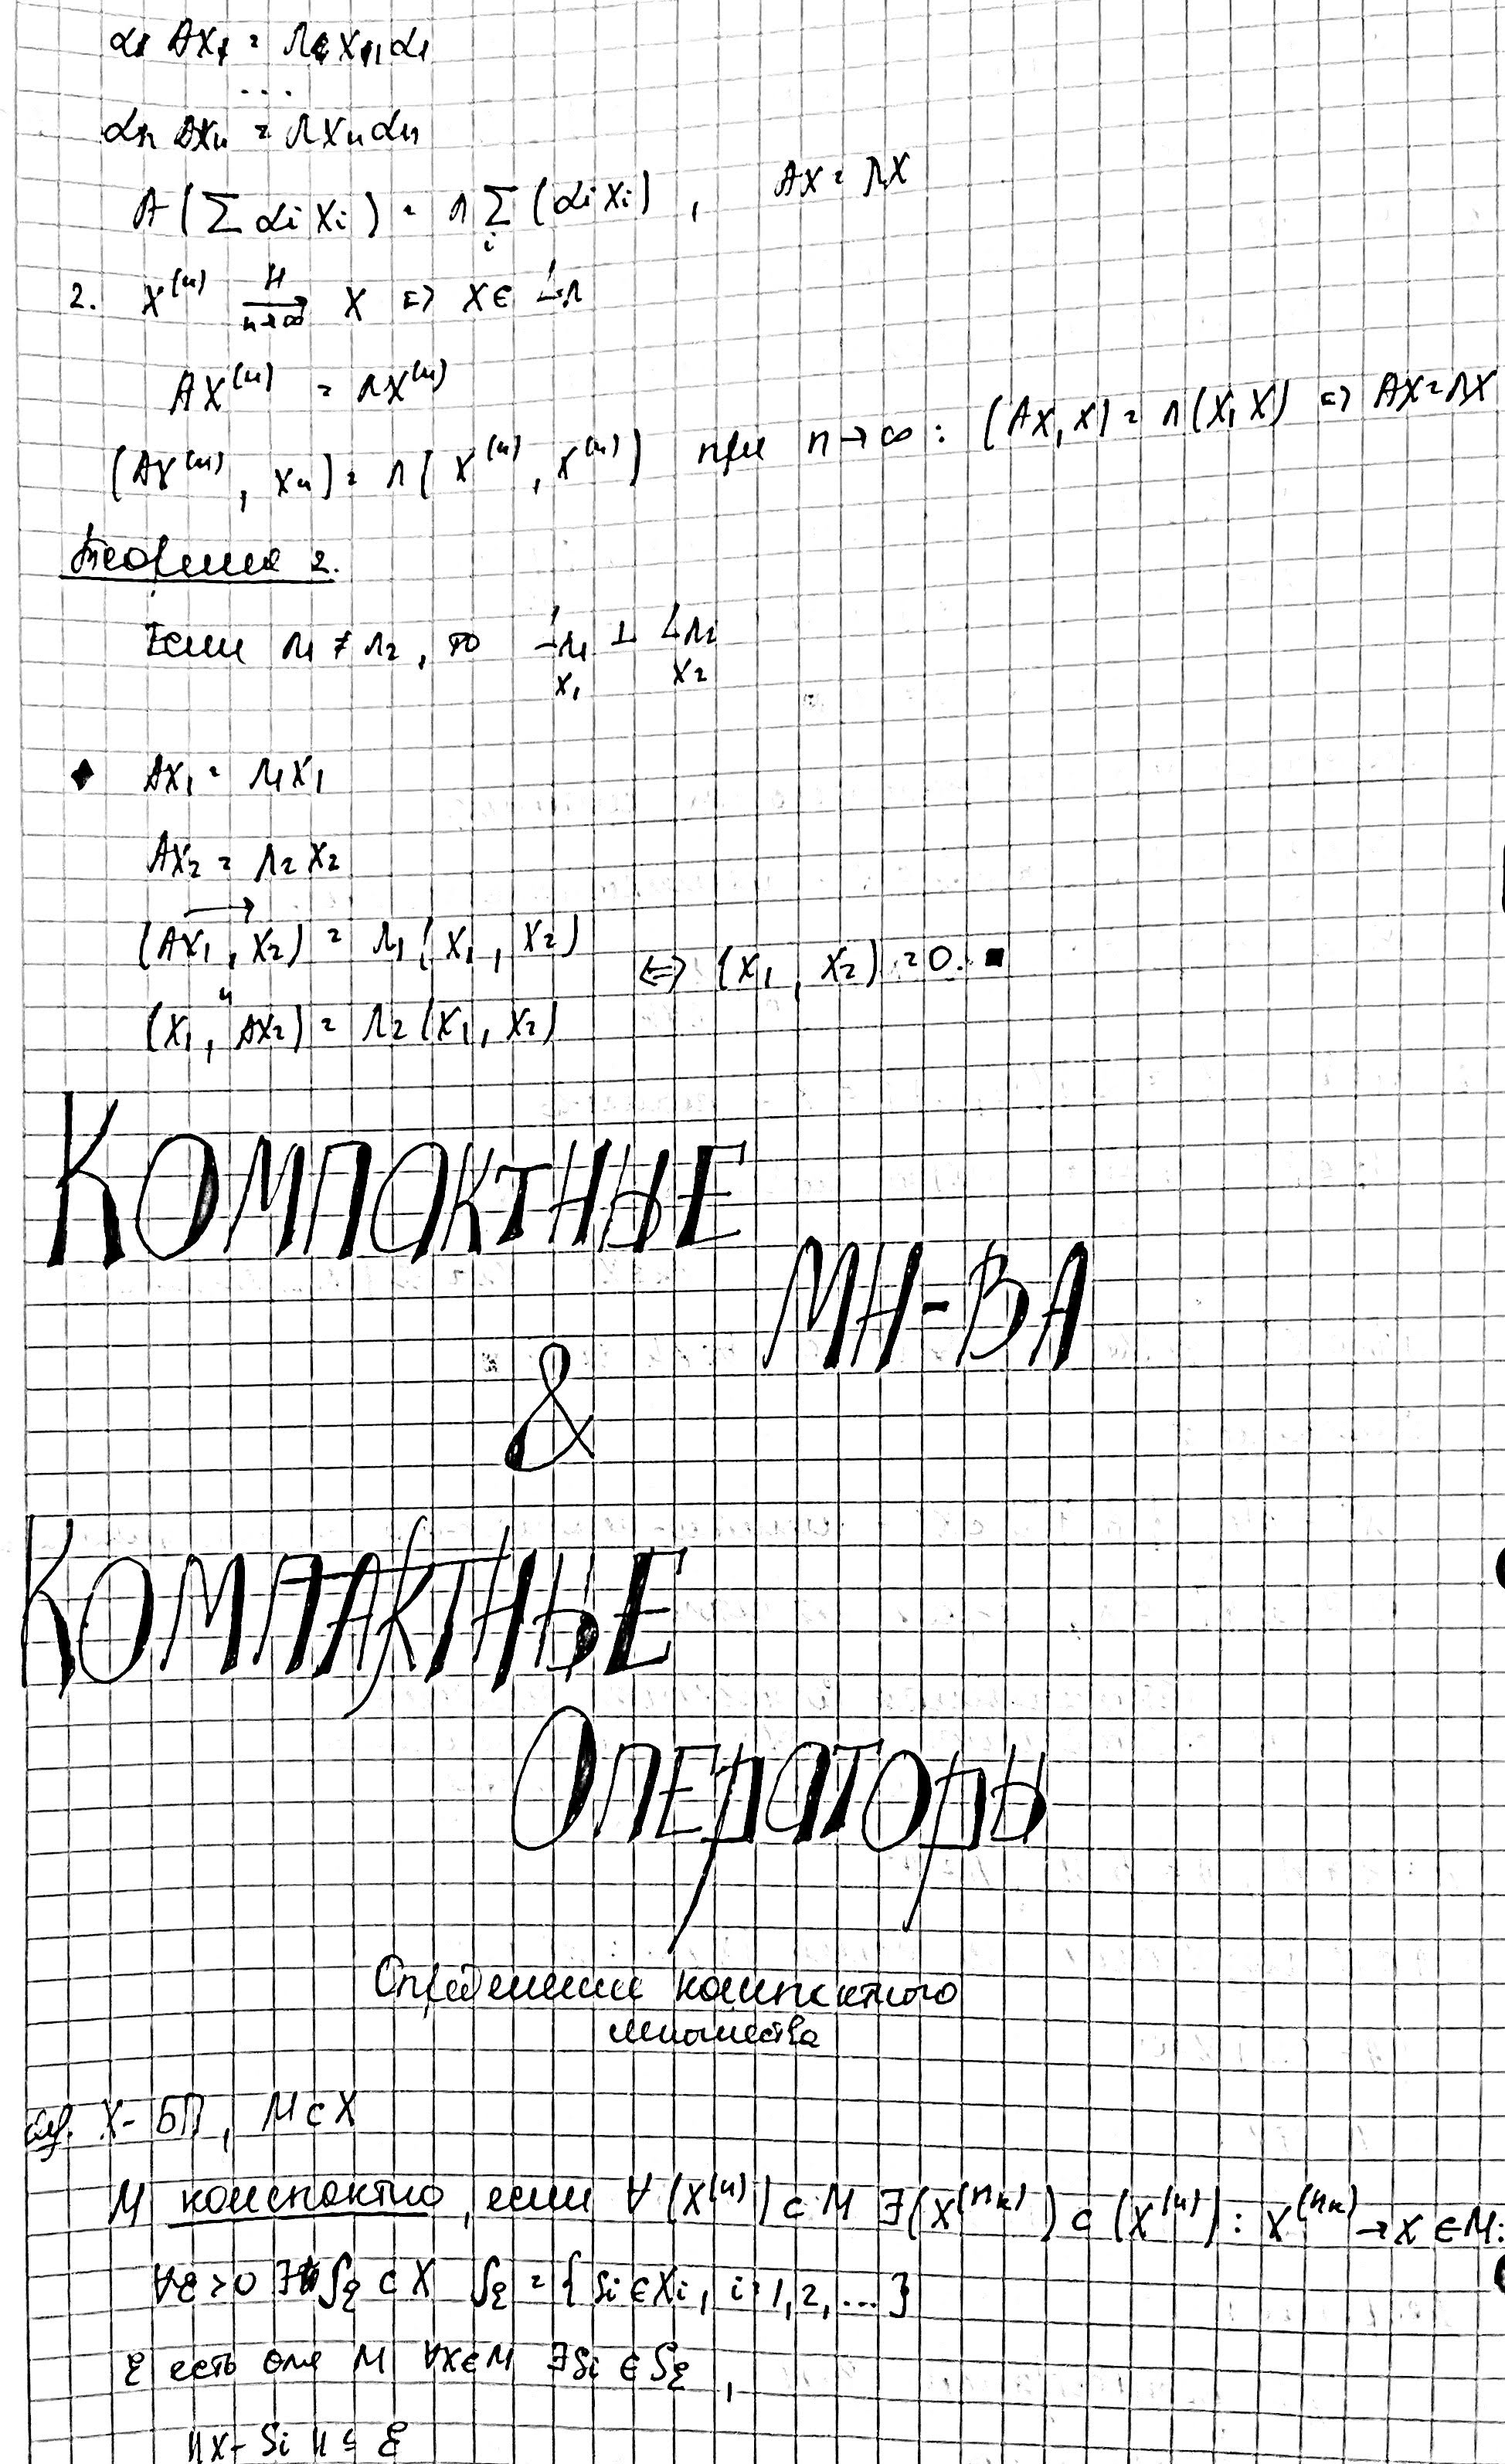 α₁ AX₁ = λ₁ X₁, α₁
...
αn AXn = λXn αn
A(∑ αi Xi) = λ ∑i (αi Xi), AX = λX
2. X⁽ⁿ⁾ →(H, n→∞) X ⇔ X ∈ Lλ
AX⁽ⁿ⁾ = λX⁽ⁿ⁾
(AX⁽ⁿ⁾, Xn) = λ(X⁽ⁿ⁾, X⁽ⁿ⁾) при n→∞: (AX, X) = λ(X, X) ⇔ AX = λX
Теорема 2.
Если λ₁ ≠ λ₂, то Lλ₁ ⊥ Lλ₂
X₁ X₂
♦ AX₁ = λ₁X₁
AX₂ = λ₂X₂
(AX₁, X₂) = λ₁(X₁, X₂)
⇔ (X₁, X₂) = 0. ■
(X₁, AX₂) = λ₂(X₁, X₂)
КОМПАКТНЫЕ
МН-ВА
&
КОМПАКТНЫЕ
ОПЕРАТОРЫ
Определение компактного
множества
X - БП, M ⊂ X
M компактно, если ∀(X⁽ⁿ⁾) ⊂ M ∃(X⁽ⁿᵏ⁾) ⊂ (X⁽ⁿ⁾): X⁽ⁿᵏ⁾ → X ∈ M:
∀ε > 0 ∃ Sε ⊂ X Sε = {Si ∈ Xi, i = 1, 2, ...}
ε есть для M ∀X ∈ M ∃Si ∈ Sε,
||X - Si|| ≤ ε